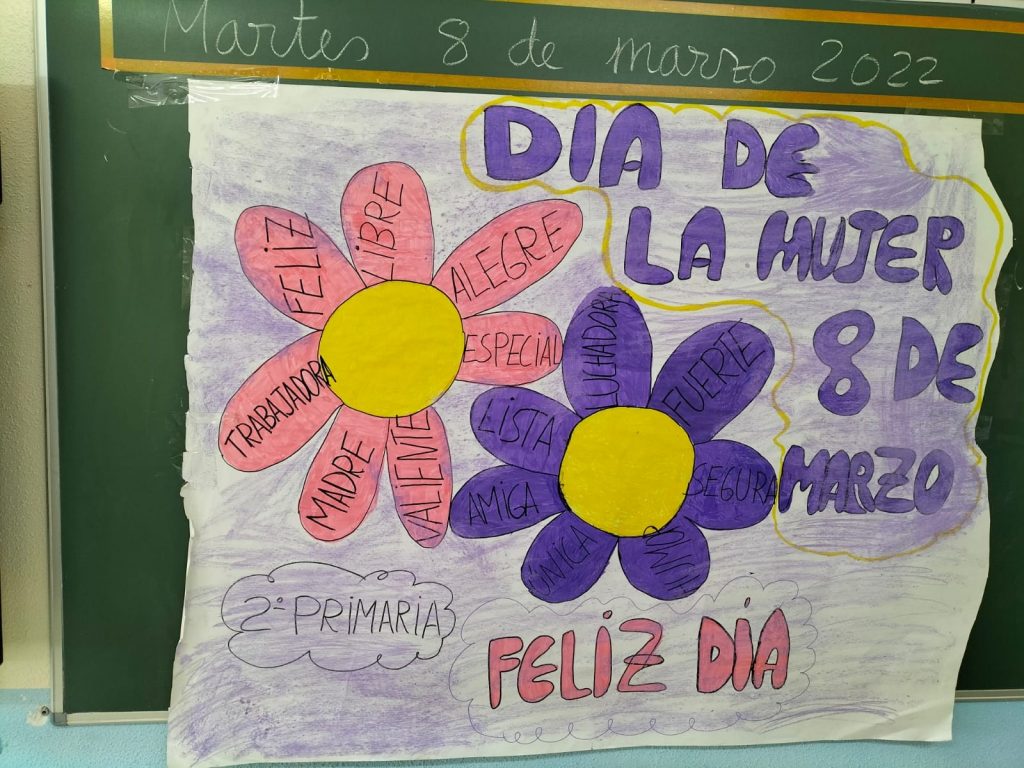 Martes 8 de marzo 2022
DIA DE
LA MUJER
8 DE
MARZO
FELIZ
LIBRE
ALEGRE
ESPECIAL
VALIENTE
MADRE
TRABAJADORA
LUCHADORA
FUERTE
SEGURA
ÚNICA
AMIGA
LISTA
2º PRIMARIA
FELIZ DÍA